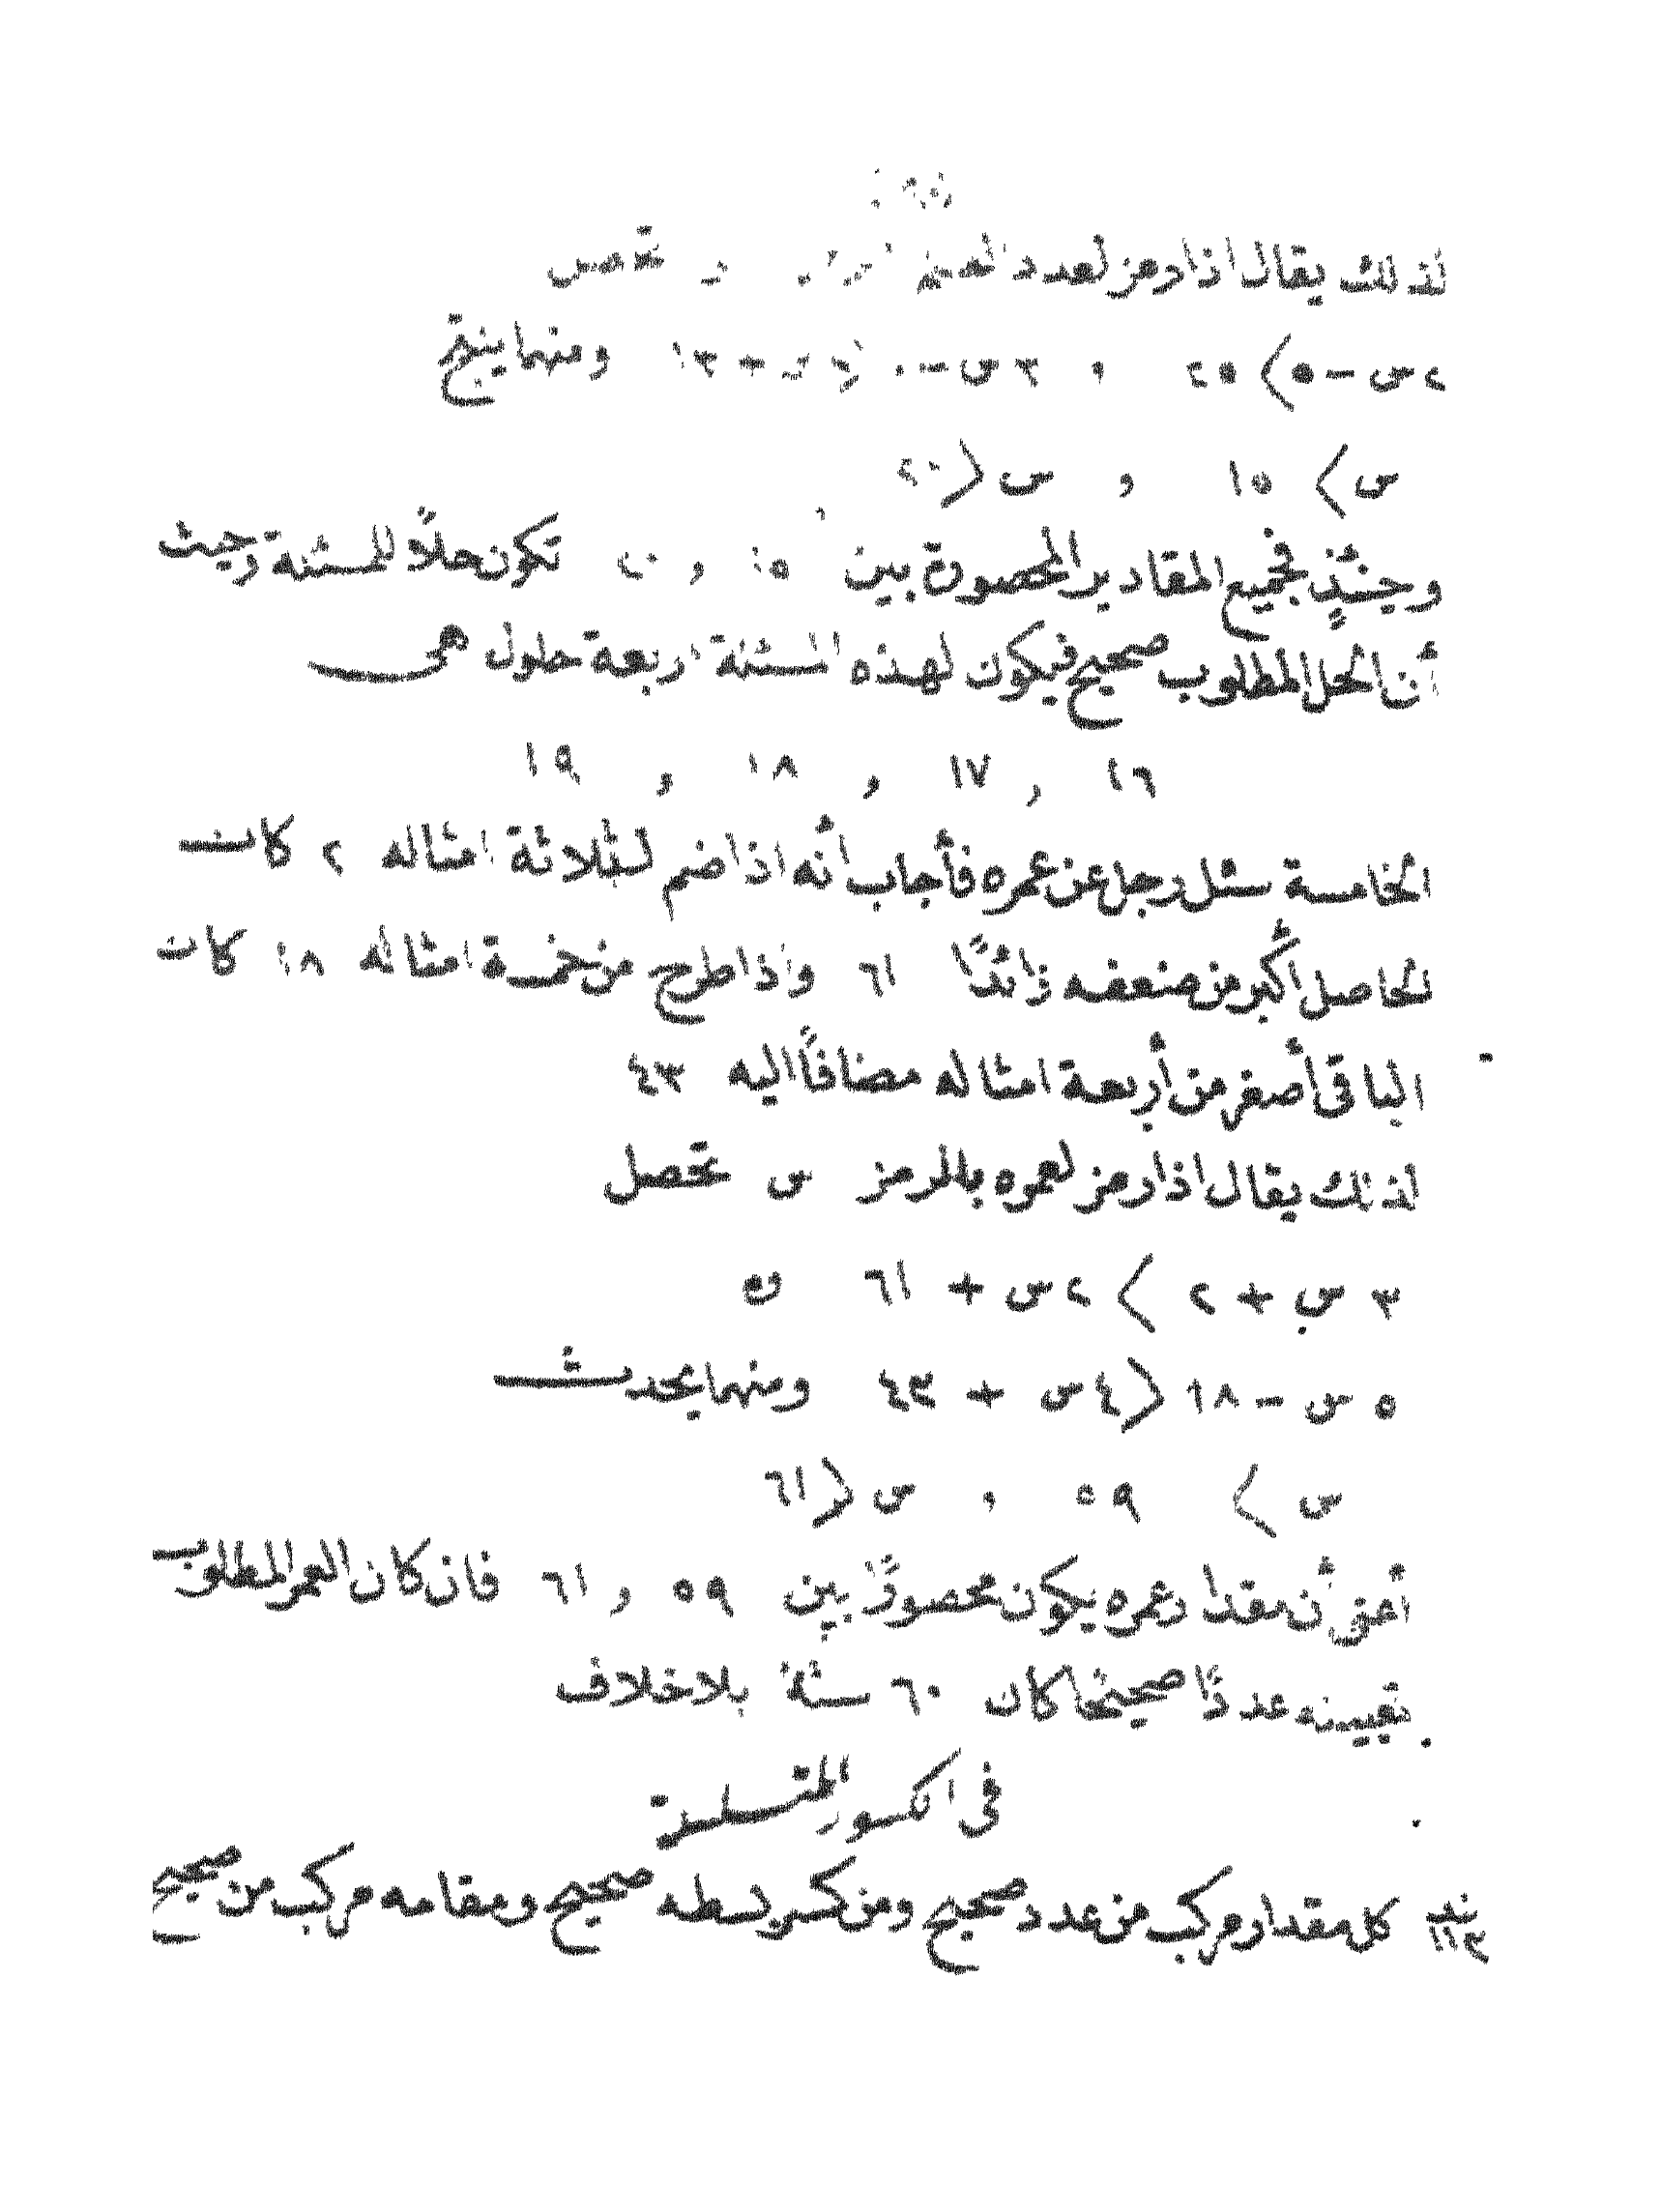 لذلك يقال اذا رمز لعدد الغنم تحصل
٢س - ٥ 〉 ٢٥ , ٣س - ٢س + ١٣ ومنهما ينتج
س 〉 ١٥ , س 〈 ٢٠
وحينئذٍ فجميع المقادير المحصورة بين ١٥ , ٢٠ تكون حلاً للمسئلة وحيث
أن الحل المطلوب صحيح فيكون لهذه المسئلة اربعة حلول هى
١٦ , ١٧ , ١٨ , ١٩
الخامسة سئل رجل عن عمره فأجاب أنه اذا ضم لثلاثة امثاله ٢ كان
الحاصل اكبر من ضعفه زائدًا ٦١ واذا طرح من خمسة امثاله ١٨ كان
الباقى أصغر من أربعة امثاله مضافًا اليه ٤٣
لذلك يقال اذا رمز لعمره بالرمز س تحصل
٣ س + ٢ 〉 ٢س + ٦١ و
٥ س - ١٨ 〈 ٤س + ٤٣ ومنهما يحدث
س 〉 ٥٩ , س 〈 ٦١
أعنى أن مقدار عمره يكون محصورًا بين ٥٩ , ٦١ فان كان العمر المطلوب
تعيينه عددًا صحيحًا كان ٦٠ سنة بلا خلاف
فى الكسور المتسلسلة
بند ١١٣ كل مقدار مركب من عدد صحيح ومن كسر بسطه صحيح ومقامه مركب من صحيح